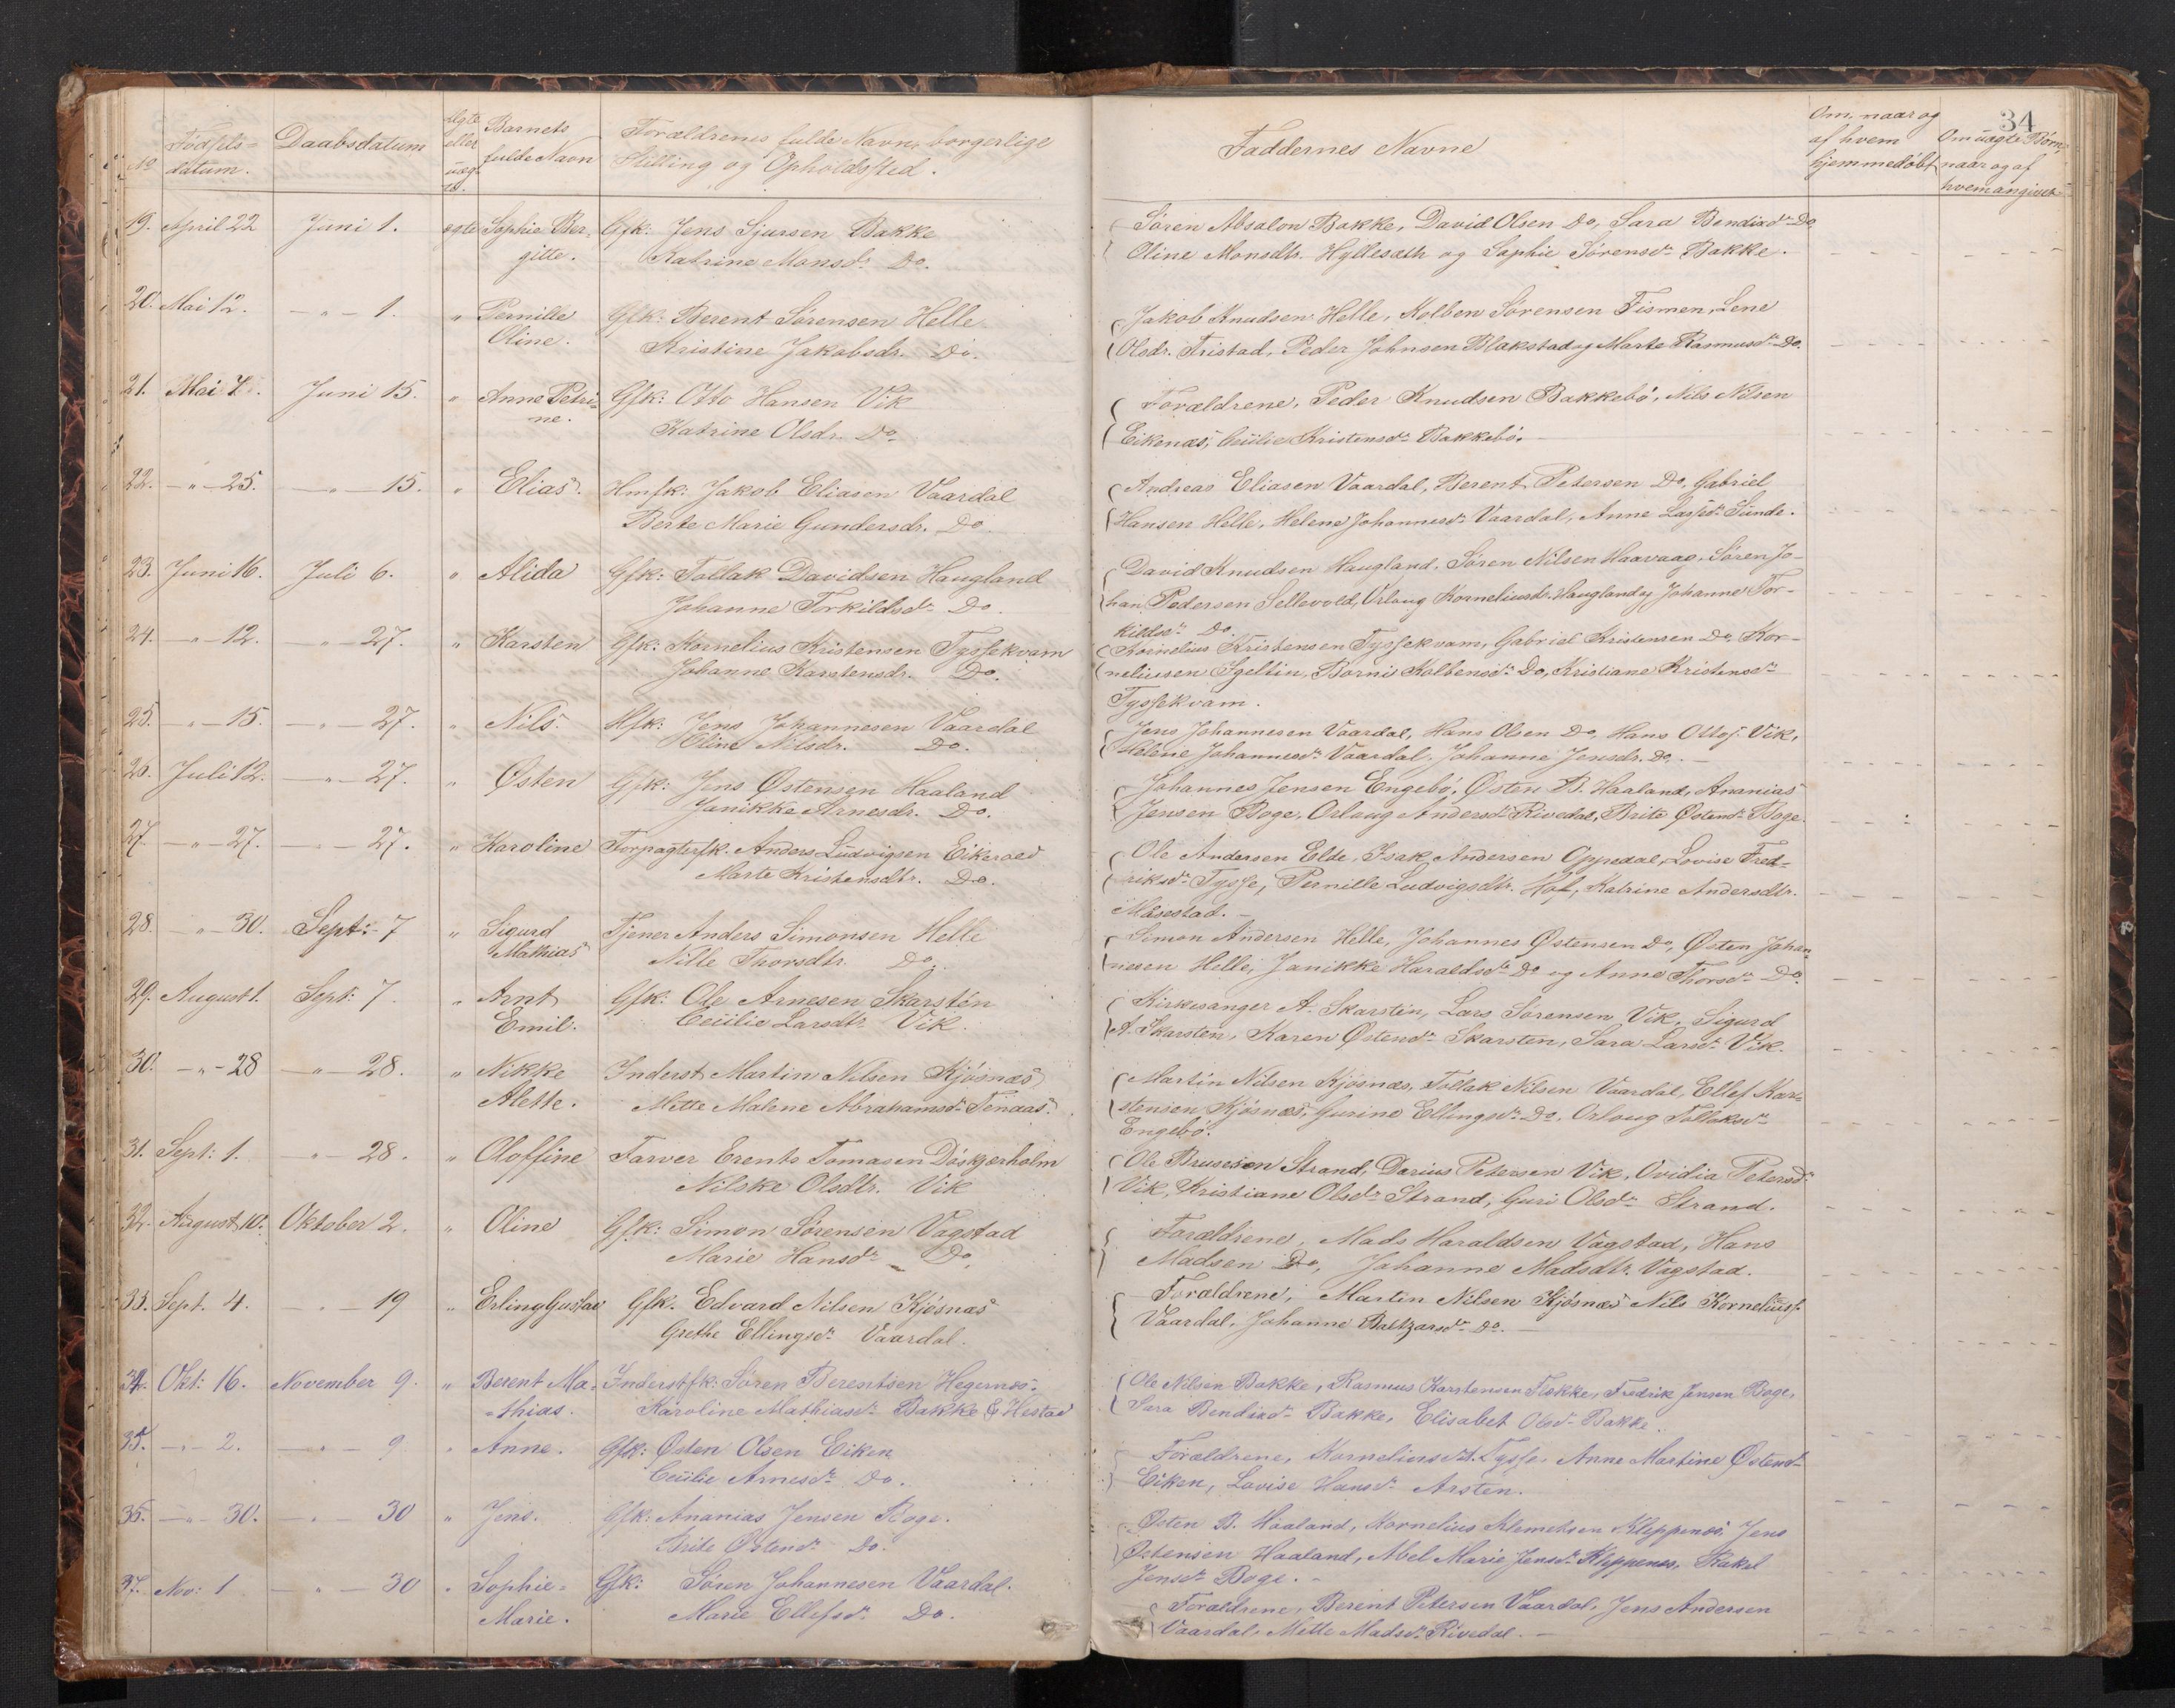 34
No Fødsels=datum. Daabsdatum Ægte eller uægte. Barnets fulde Navn Forældrenes fulde Navn, borgerlige Stilling og Opholdssted.
Faddernes Navne Om, naar og af hvem hjemmedøbt Om uægte Børn, naar og af hvem angivet
19. April 22 Juni 1. ægte Sophie Ber- Gfk: Jens Sjursen Bakke
gitte. Katrine Monsdr. Do.
Søren Absalon Bakke, David Olsen Do, Sara Bendixdr Do
Oline Monsdtr. Hyllesæth og Sophie Sørensdr Bakke.
20. Mai 12. — " — 1. " Pernille Gfk: Berent Sørensen Helle
Oline. Kristine Jakobsdr. Do.
Jakob Knudsen Helle, Kolben Sørensen Fismen, Lene
Olsdr. Tristad, Peder Johnsen Blakstad og Marte Rasmusdr Do.
21. Mai 7. Juni 15. " Anne Petri- Gfk: Otto Hansen Vik
ne. Katrine Olsdr. Do
Forældrene, Peder Knudsen Bakkebø, Nils Nilsen
Eikenæs, Cecilie Kristensdr Bakkebø.
22. — " — 25. — " — 15. " Elias. Hmfk: Jakob Eliasen Vaardal
Berte Marie Gundersdr. Do
Andreas Eliasen Vaardal, Berent Petersen Do, Gabriel
Hansen Helle, Helene Johannesdr Vaardal, Anne Larsdr Sunde.
23. Juni 16. Juli 6. " Alida Gfk: Tollak Davidsen Haugland
Johanne Torkildsdr Do.
David Knudsen Haugland, Søren Nilsen Haavaag, Søren Jo-
han Pedersen Sellevold, Orlaug Korneliusdr. Haugland og Johanne Tor-
kildsdr Do.
24. — " — 12. — " — 27. " Karsten Gfk: Kornelius Kristensen Tyssekvam
Johanne Karstensdr. Do.
Kornelius Kristensen Tyssekvam, Gabriel Kristensen Do, Kor-
neliusen Igeltin, Borni Kolbensdr Do, Kristiane Kristensdr
Tyssekvam.
25. — " — 15. — " — 27. " Nils. Hfk: Jens Johannesen Vaardal
Oline Nilsdr. Do.
Jens Johannesen Vaardal, Hans Olsen Do, Hans Ottos. Vik,
Helene Johannesdr Vaardal, Johanne Jensdr. Do.
26. Juli 12. — " — 27. " Østen Gfk: Jens Østensen Haaland
Janikke Arnesdr. Do.
Johannes Jensen Engebø, Østen B. Haaland, Ananias
Jensen Boge, Orlaug Andersdr Rivedal, Brite Østensdr Boge.
27. — " — 27. — " — 27. " Karoline Forpagterfk. Anders Ludvigsen Eikeroed
Marte Kristensdtr. Do.
Ole Andersen Elde, Isak Andersen Oppedal, Lovise Fred-
riksdr Tysse, Pernille Ludvigsdtr. Hof, Katrine Andersdtr.
Masestad. —
28. — " — 30. Sept: 7 " Sigurd Tjener Anders Simonsen Helle
Mathias Nille Thorsdtr. Do.
Simon Andersen Helle, Johannes Østensen Do, Østen Johan-
nesen Helle, Janikke Haraldsdr Do og Anne Thorsdr Do.
29. August 1. Sept: 7. " Arnt Gfk: Ole Arnesen Skarsten
Emil. Cecilie Larsdtr. Vik.
Kirkesanger A. Skarsten, Lars Sørensen Vik, Sigurd
A. Skarsten, Karen Østensdr Skarsten, Sara Larsdr Vik.
30. — " — 28 — " — 28. " Nikke Inderst Martin Nilsen Kjøsnæs
Alette. Mette Malene Abrahamsdr Tenaas.
Martin Nilsen Kjøsnæs, Tollak Nilsen Vaardal, Ellef Kar-
stensen Kjøsnæs, Gurine Ellingsdr Do, Orlaug Tollaksdr
Engebø.
31. Sept: 1. — " — 28. " Oloffine Farver Erents Tomasen Døskjerholm
Nilske Olsdtr. Vik
Ole Brusesen Strand, Darius Petersen Vik, Ovidia Petersdr
Vik, Kristiane Olsdr Strand, Guri Olsdr Strand.
32. August 10. Oktober 2. " Oline Gfk: Simon Sørensen Vagstad
Marie Hansdr Do.
Forældrene, Mads Haraldsen Vagstad, Hans
Madsen Do, Johanne Madsdtr. Vagstad.
33. Sept. 4. — " — 19 " Erling Gustav Gfk. Edvard Nilsen Kjøsnæs
Grethe Ellingsdr Vaardal.
Forældrene, Martin Nilsen Kjøsnæs Nils Korneliuss.
Vaardal, Johanne Baltzarsdr Do. —
34. Okt: 16. November 9. " Berent Ma- Inderstfk: Søren Berentsen Hegernæs
=thias. Karoline Mathiasdr Bakke & Hestad
Ole Nilsen Bakke, Rasmus Karstensen Flekke, Fredrik Jensen Boge,
Sara Bendixdr Bakke, Elisabet Olsdr Bakke.
35. — " — 2. — " — 9 " Anne. Gfk: Østen Olsen Eiken
Cecilie Arnesdr Do.
Forældrene, Kornelius Tysse, Anne Martine Østensdr
Eiken, Lovise Hansdr Arsten.
36. — " — 30. — " — 30 " Jens. Gfk: Ananias Jensen Boge.
Brite Østensdr Do.
Østen B. Haaland, Kornelius Klemetsen Kleppenes, Jens
Østensen Haaland, Abel Marie Jensdr Kleppenes, Rakel
Jensdr Boge. —
37. Nov: 1 — " — 30 " Sophie= Gfk: Søren Johannesen Vaardal.
Marie. Marie Ellefsdr Do.
Forældrene, Berent Petersen Vaardal, Jens Andersen
Vaardal, Mette Madsdr Rivedal. —